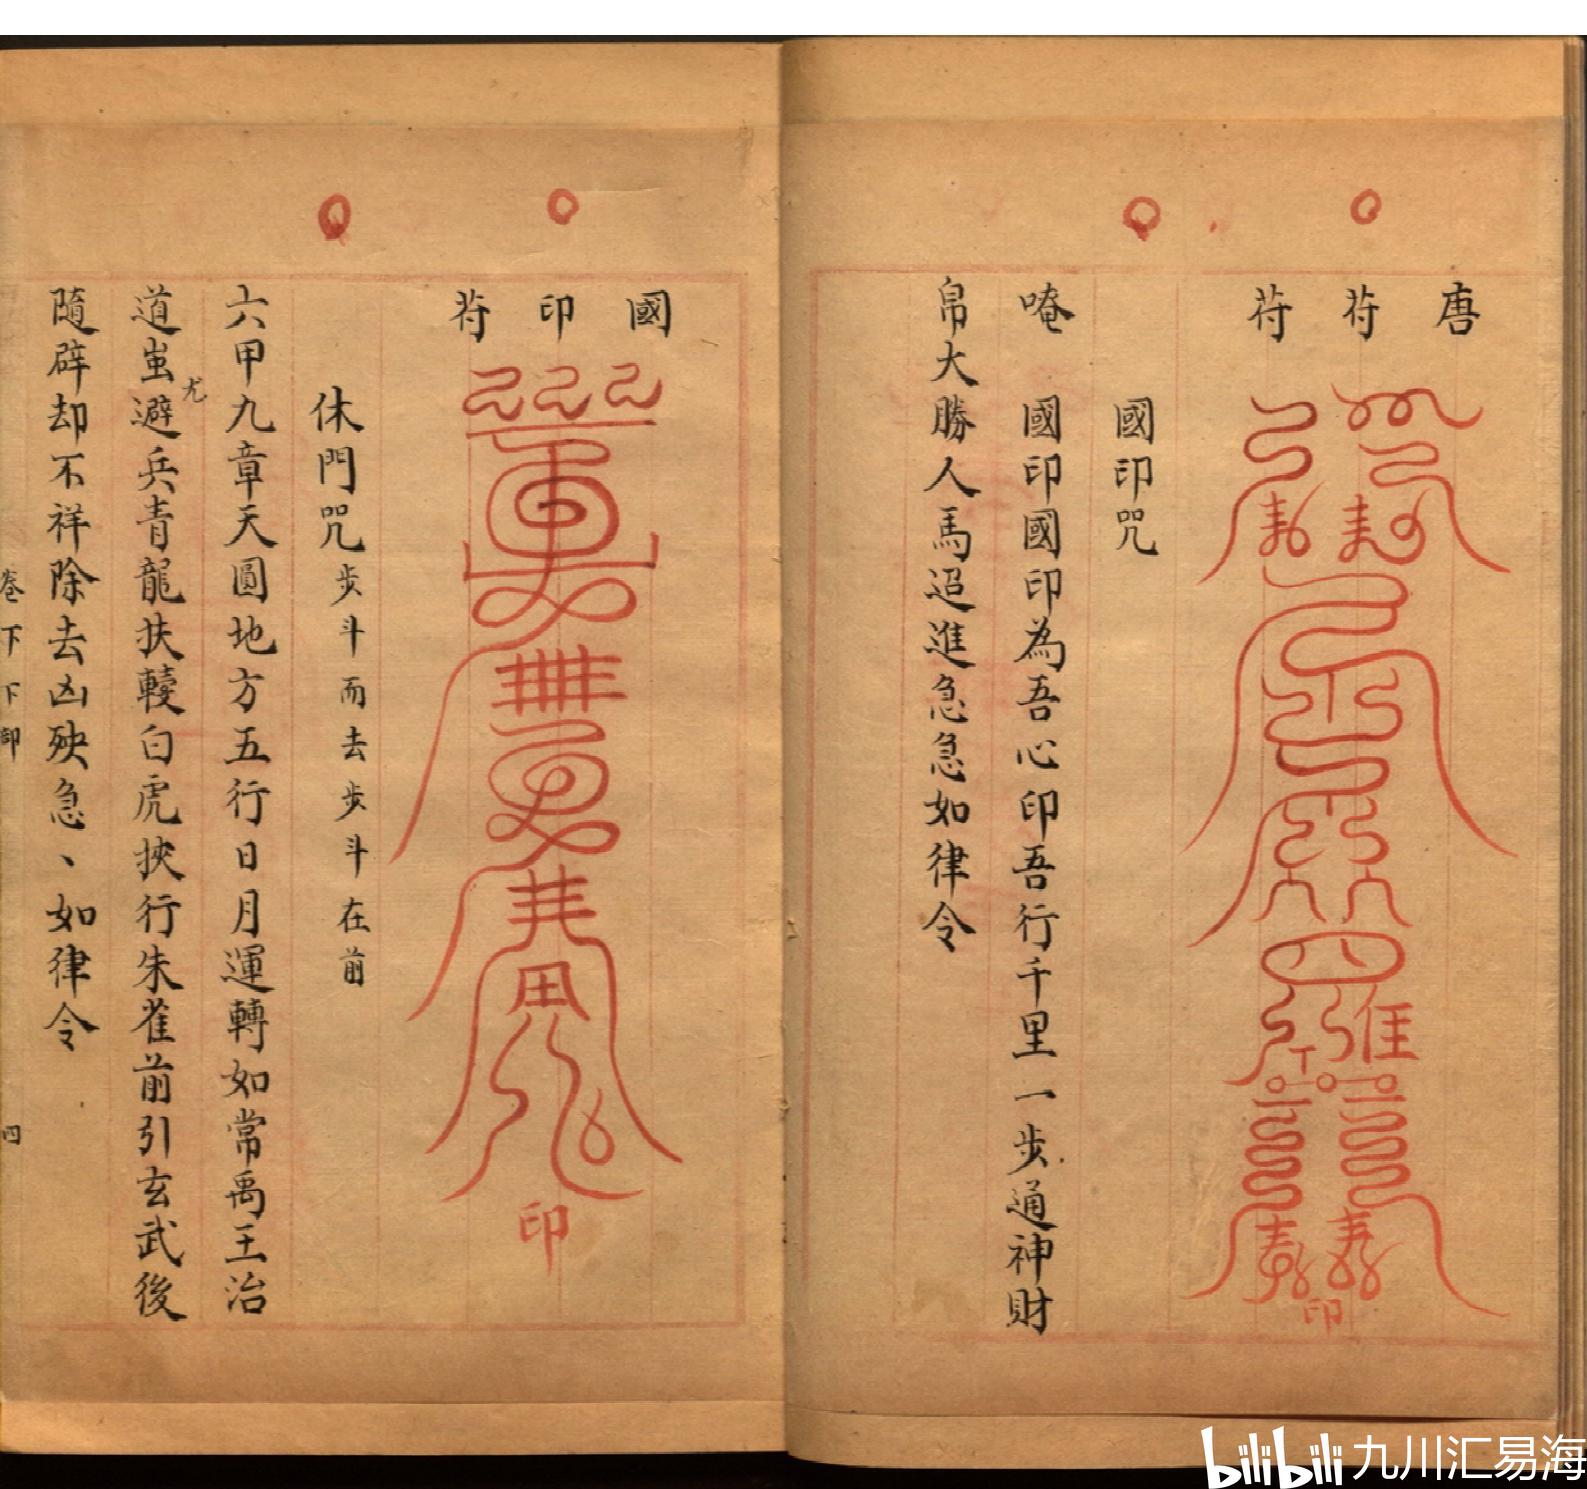 唐符符
印
國印咒
唵 國印國印為吾心印吾行千里一步通神財
帛大勝人馬迢進急急如律令
國印符
印
休門咒 步斗而去步斗在前
六甲九章天圓地方五行日月運轉如常禹王治
道蚩避兵青龍扶轅白虎挾行朱雀前引玄武後
尤
隨辟却不祥除去凶殃急、如律令
卷下 下部 四
bilibili 九川汇易海